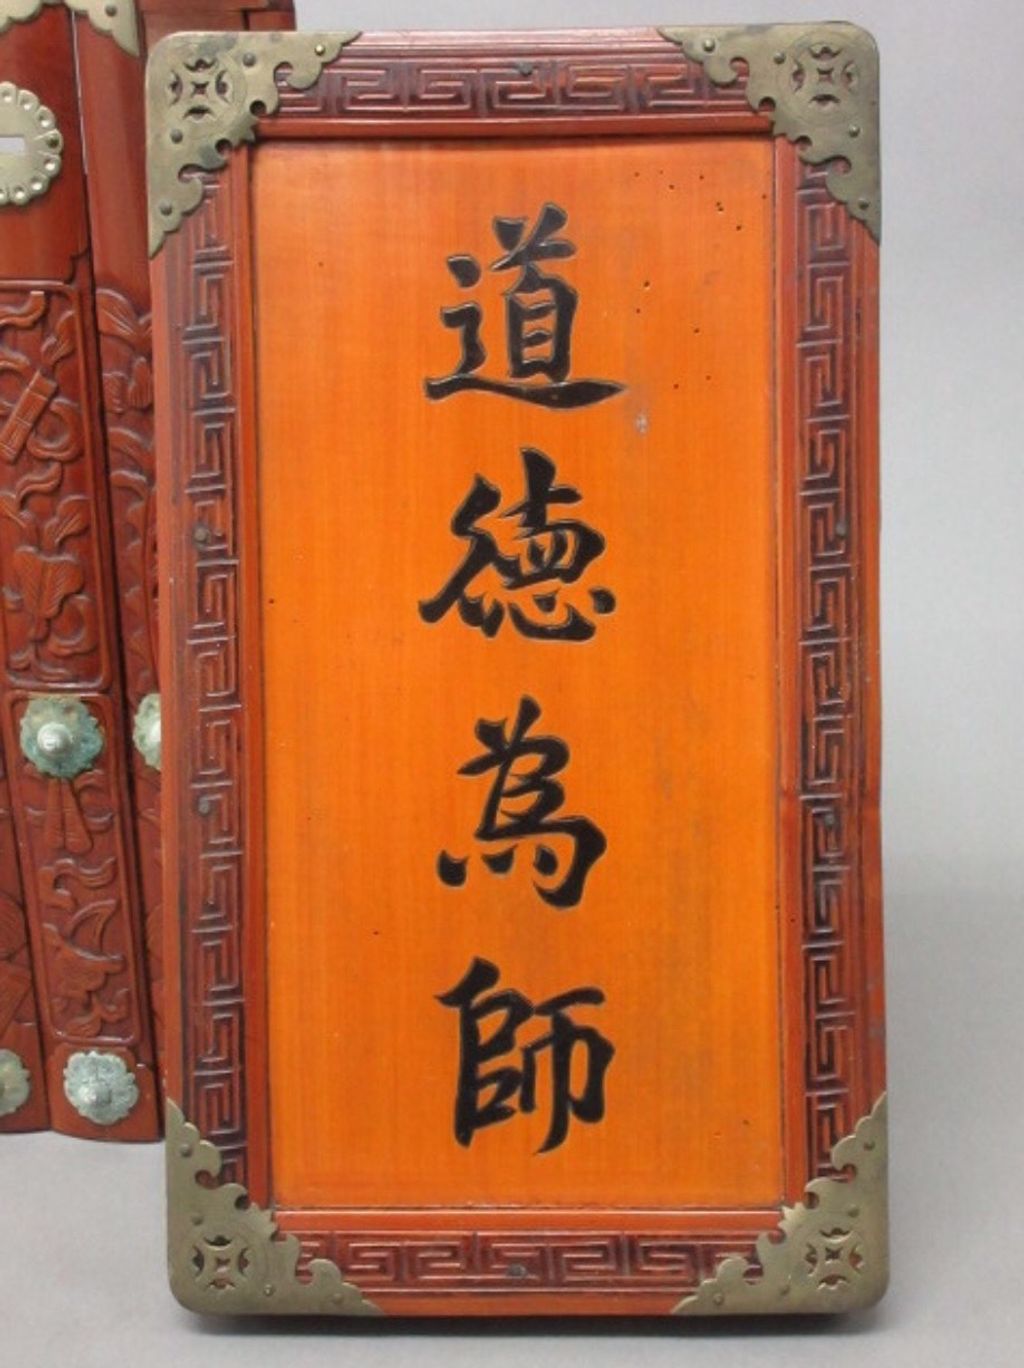 道德為師